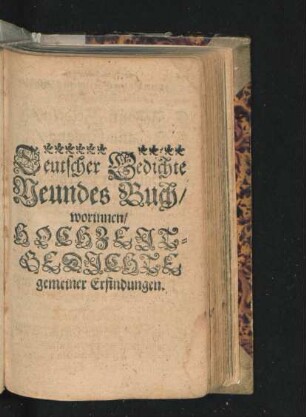 Deutscher Gedichte
Neundes Buch/
worinnen/
HOCHZEIT-
GEDICHTE
gemeiner Erfindungen.